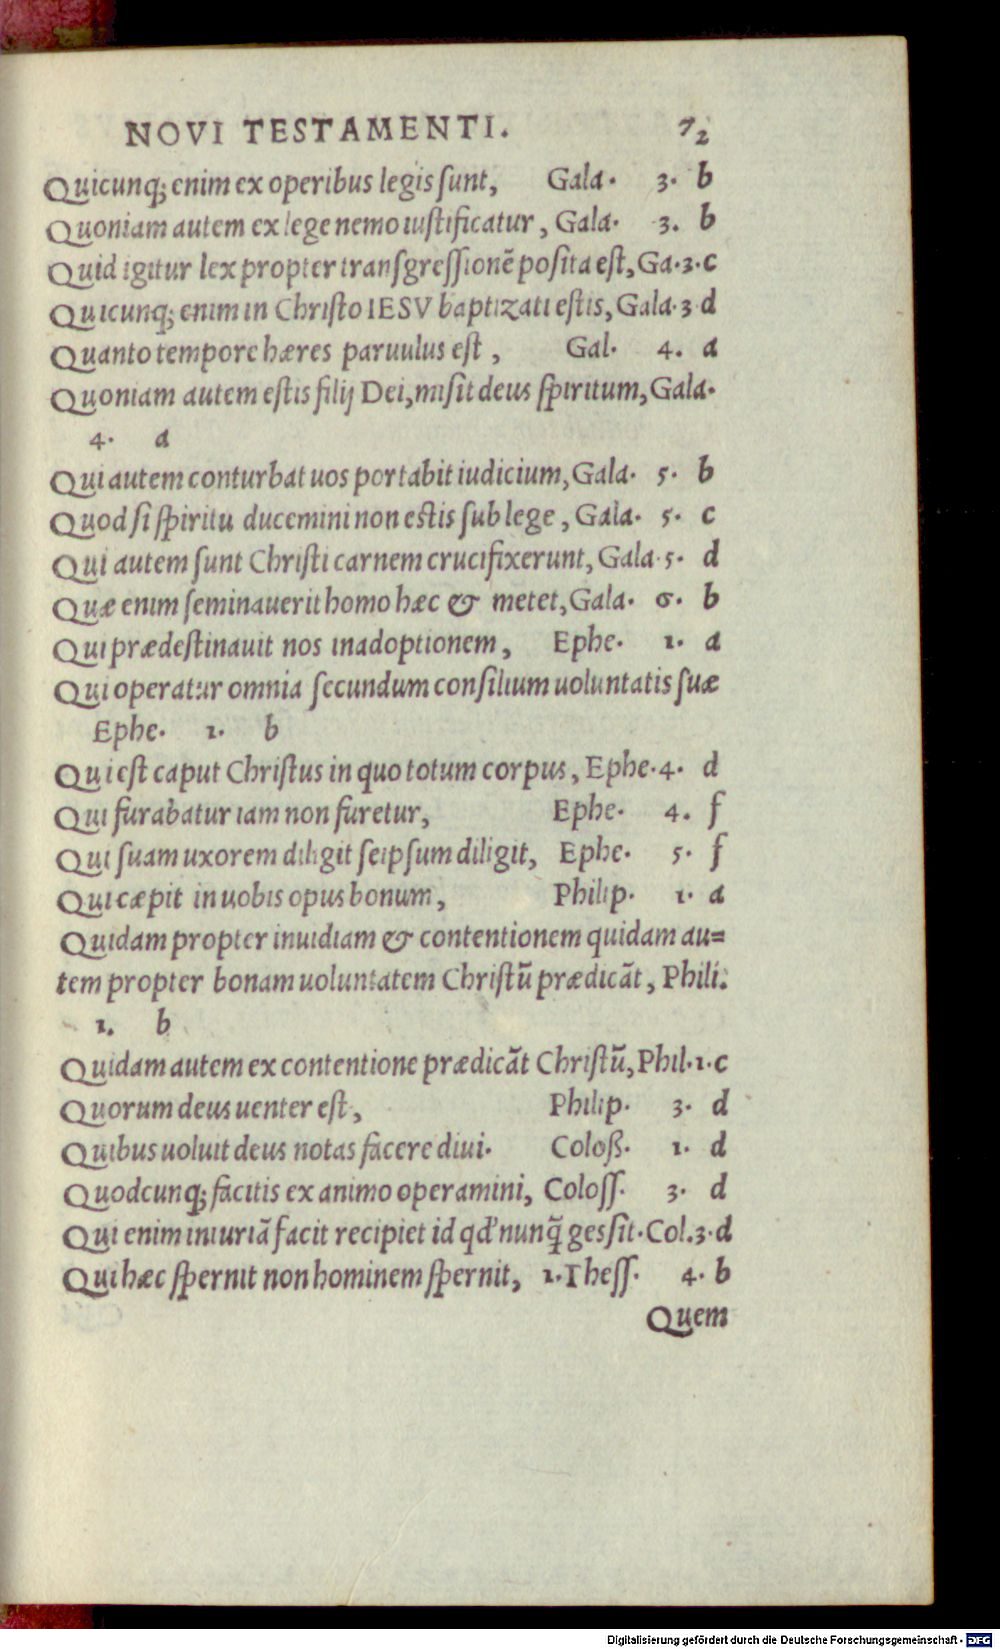 NOVI TESTAMENTI. 72
Quicunq; enim ex operibus legis ſunt, Gala. 3. b
Quoniam autem ex lege nemo iuſtificatur, Gala. 3. b
Quid igitur lex propter tranſgreſſionē poſita eſt, Ga.3.c
Quicunq; enim in Chriſto IESV baptizati eſtis, Gala.3.d
Quanto tempore hæres paruulus eſt, Gal. 4. a
Quoniam autem eſtis filij Dei, miſit deus ſpiritum, Gala.
4. a
Qui autem conturbat uos portabit iudicium, Gala. 5. b
Quod ſi ſpiritu ducemini non eſtis ſub lege, Gala. 5. c
Qui autem ſunt Chriſti carnem crucifixerunt, Gala.5. d
Quæ enim ſeminauerit homo hæc & metet, Gala. 6. b
Qui prædeſtinauit nos inadoptionem, Ephe. 1. a
Qui operatur omnia ſecundum conſilium uoluntatis ſuæ
Ephe. 1. b
Qui eſt caput Chriſtus in quo totum corpus, Ephe.4. d
Qui furabatur iam non furetur, Ephe. 4. f
Qui ſuam uxorem diligit ſeipſum diligit, Ephe. 5. f
Qui cæpit in uobis opus bonum, Philip. 1. a
Quidam propter inuidiam & contentionem quidam au=
tem propter bonam uoluntatem Chriſtū prædicāt, Phili.
1. b
Quidam autem ex contentione prædicāt Chriſtū, Phil.1.c
Quorum deus uenter eſt, Philip. 3. d
Quibus uoluit deus notas facere diui. Coloß. 1. d
Quodcunq; facitis ex animo operamini, Coloſſ. 3. d
Qui enim iniuriā facit recipiet id qd' nunq̄ geſſit. Col.3.d
Qui hæc ſpernit non hominem ſpernit, 1.Theſſ. 4. b
Quem
Digitalisierung gefördert durch die Deutsche Forschungsgemeinschaft - DFG